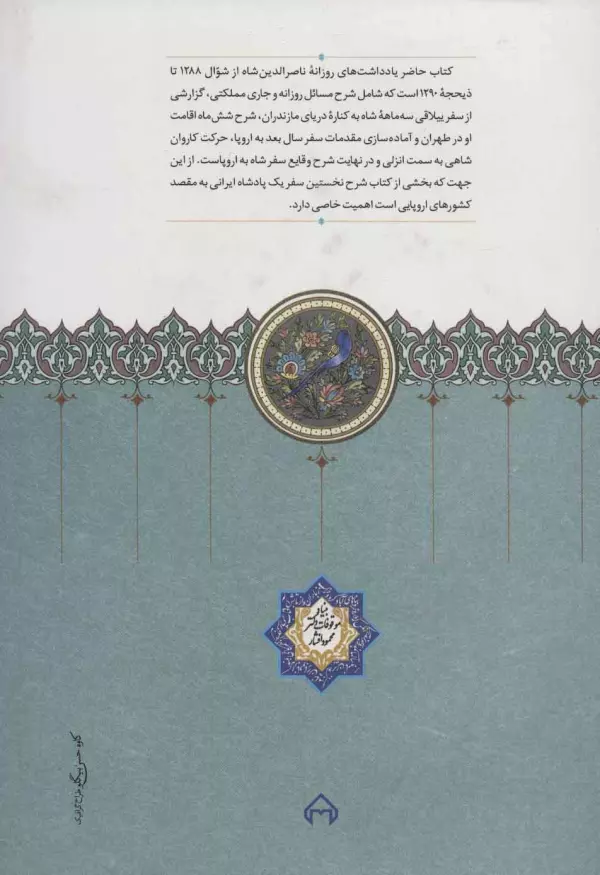 کتاب حاضر یادداشت‌های روزانهٔ ناصرالدین‌شاه از شوّال ۱۲۸۸ تا
ذیحجهٔ ۱۲۹۰ است که شامل شرح مسائل روزانه و جاری مملکتی، گزارشی
از سفر ییلاقی سه‌ماههٔ شاه به کنارهٔ دریای مازندران، شرح شش‌ماه اقامت
او در طهران و آماده‌سازی مقدمات سفر سال بعد به اروپا، حرکت کاروان
شاهی به سمت انزلی و در نهایت شرح وقایع سفر شاه به اروپاست. از این
جهت که بخشی از کتاب شرح نخستین سفر یک پادشاه ایرانی به مقصد
کشورهای اروپایی است اهمیت خاصی دارد.
بنیاد
موقوفات دکتر
محمود افشار